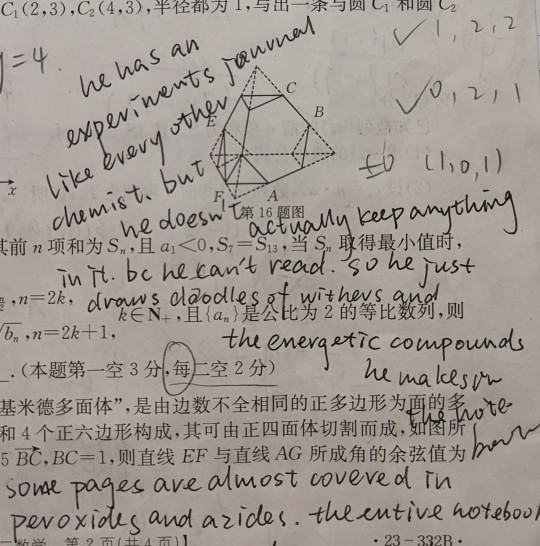 C₁(2,3),C₂(4,3),半径都为 1,写出一条与圆 C₁ 和圆 C₂
y=4.
he has an
experiments journal
like every other
chemist. but
he doesn't
actually keep anything
in it. bc he can't read. so he just
draws doodles of withers and
the energetic compounds
he makes on
the note
some pages are almost covered in
peroxides and azides. the entire notebook
✓1, 2, 2
✓0, 2, 1
(1, 0, 1)
C
B
E
F
A
x
第 16 题图
其前 n 项和为 Sₙ,且 a₁<0,S₇=S₁₃,当 Sₙ 取得最小值时,
,n=2k,
k∈N₊,且{aₙ}是公比为 2 的等比数列,则
√bₙ,n=2k+1,
.(本题第一空 3 分,每二空 2 分)
基米德多面体”,是由边数不全相同的正多边形为面的多
和 4 个正六边形构成,其可由正四面体切割而成,如图所
5 BC,BC=1,则直线 EF 与直线 AG 所成角的余弦值为
数学 第 2 页(共 4 页)】
·23-332B·